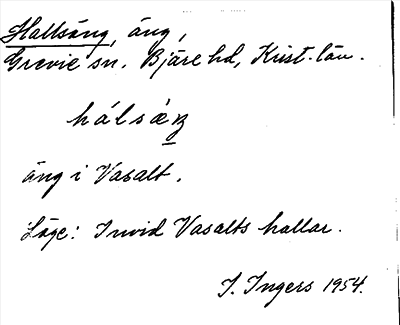 Hallsäng, äng,
Grevie sn. Bjäre hd, Krist. län.
hálsáŋ
äng i Vasalt.
Läge: Invid Vasalts hallar.
I. Ingers 1954.